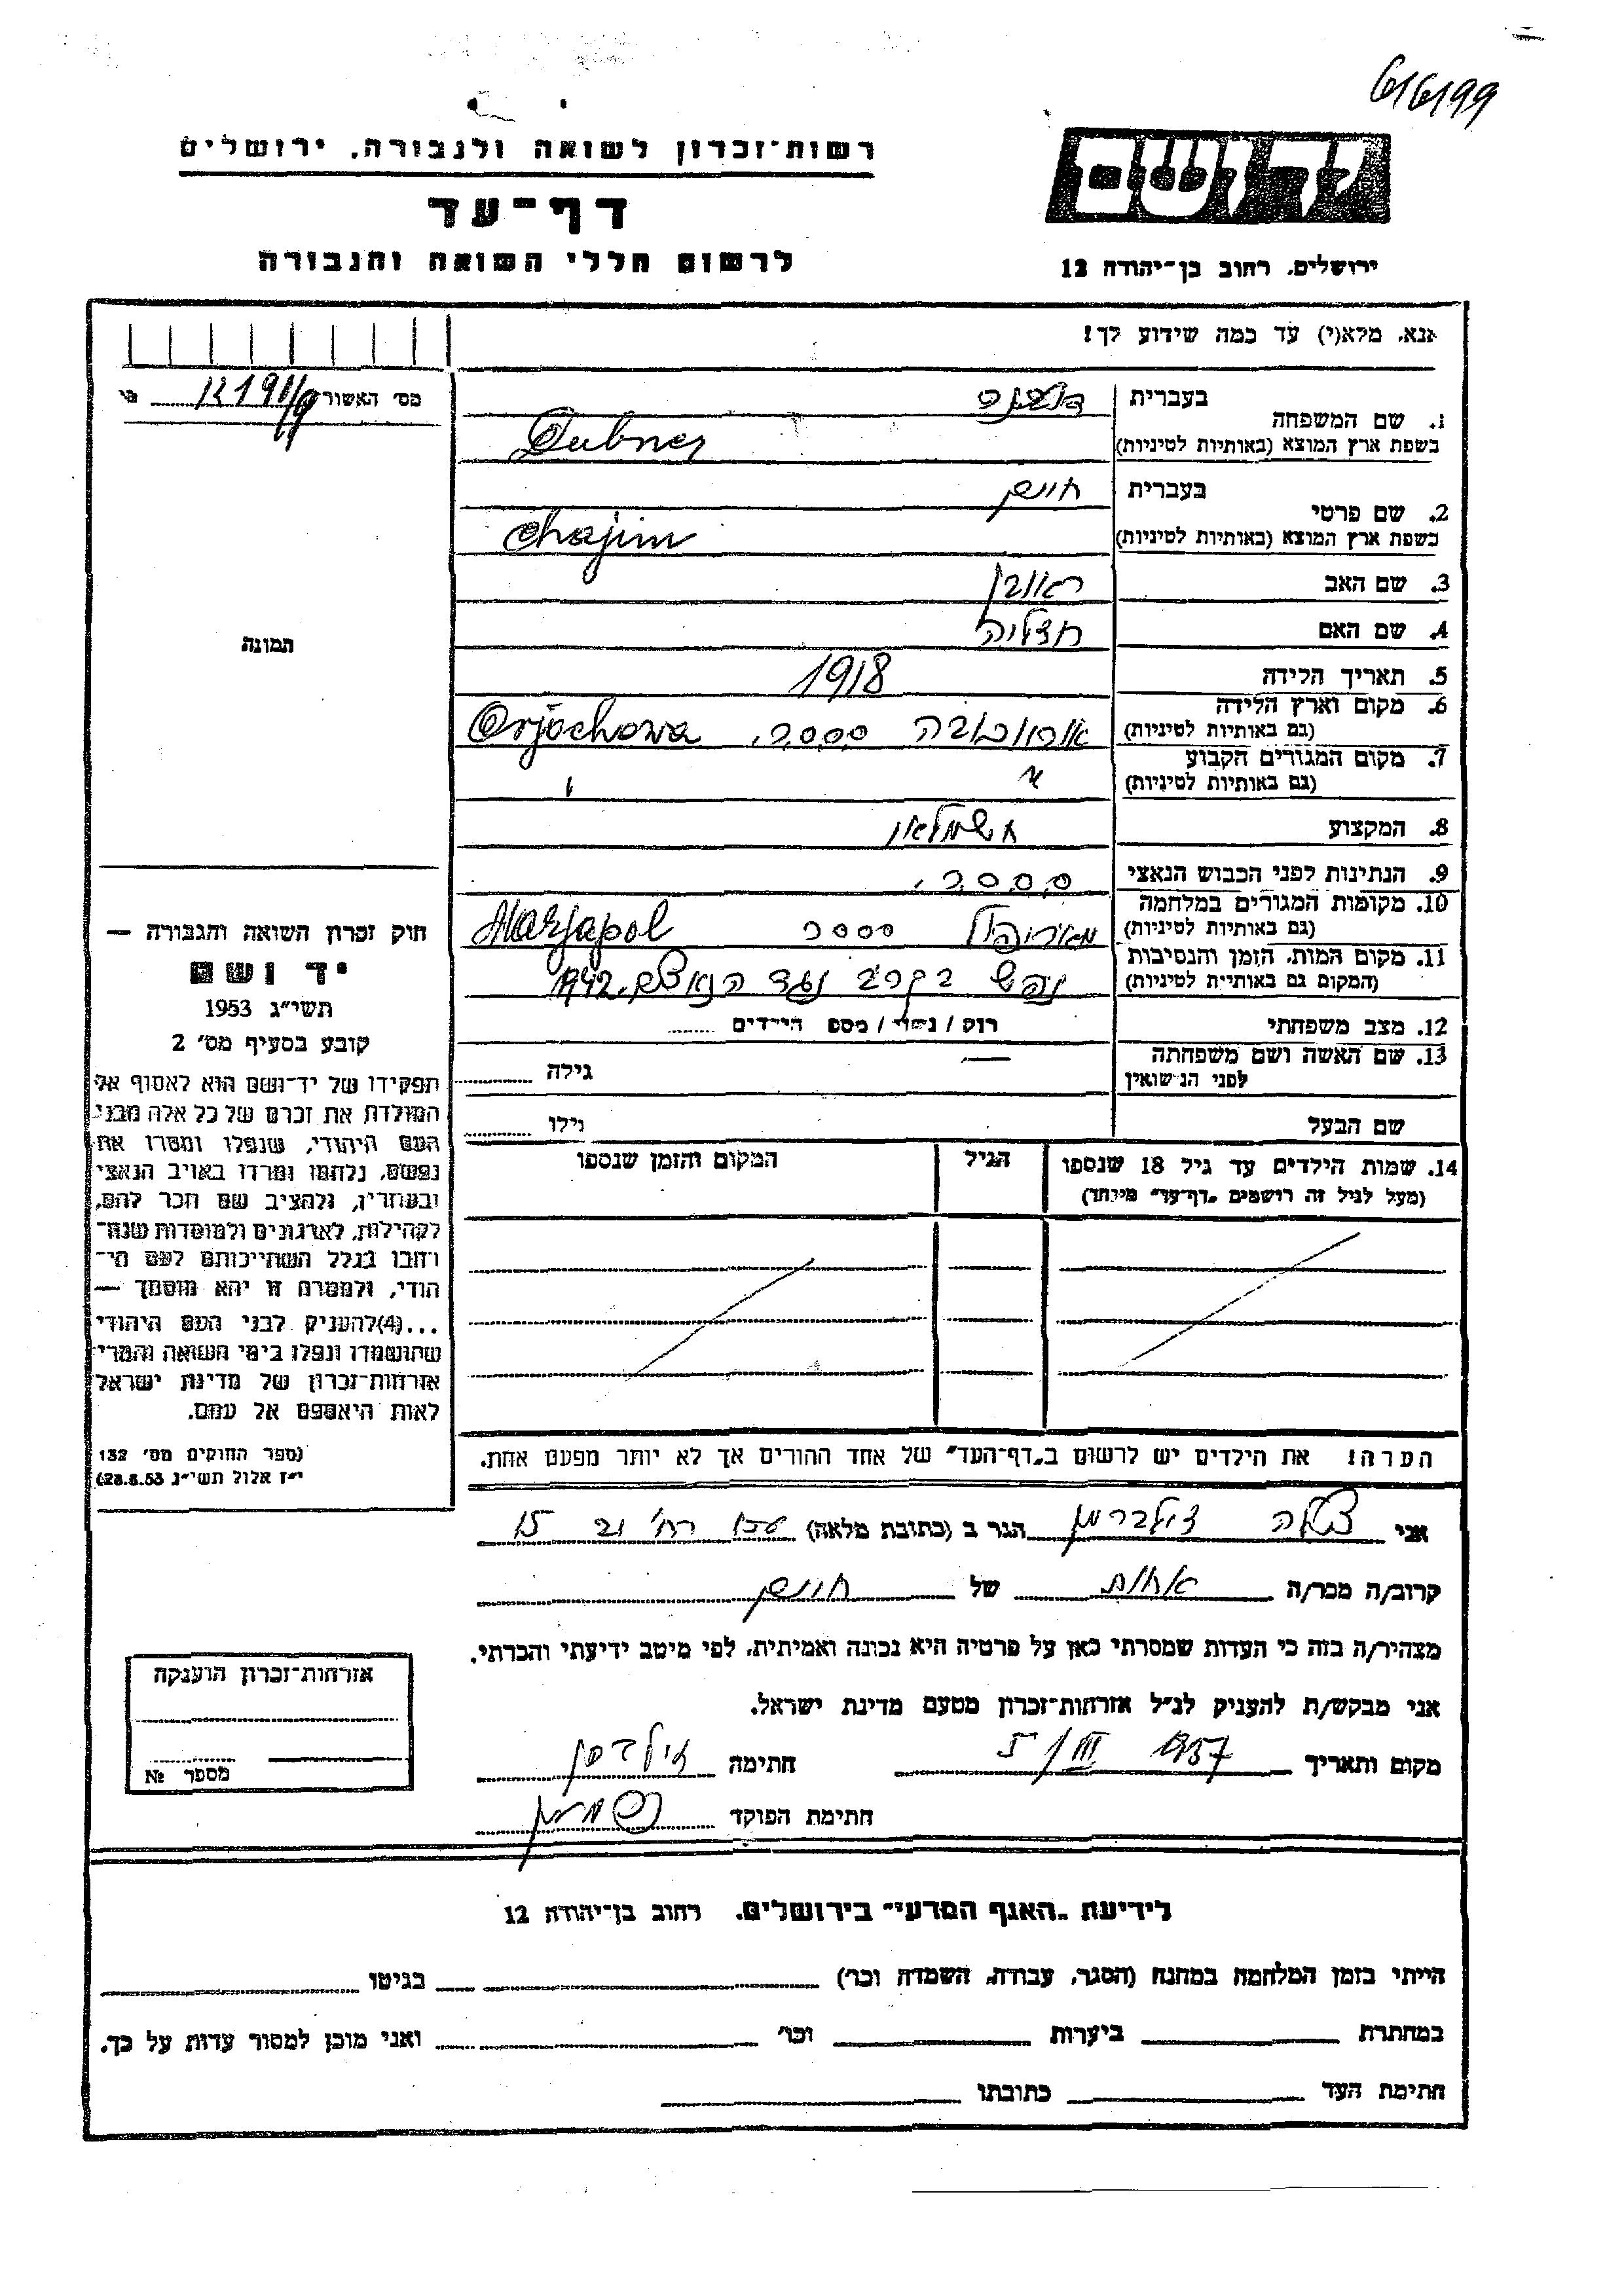 616199
רשות־זכרון לשואה ולגבורה, ירושלים
דף־עד
לרשום חללי השואה והגבורה
יד ושם
ירושלים, רחוב בן־יהודה 12
אנא, מלא(י) עד כמה שידוע לך!
מס׳ האשור
1. שם המשפחה
בעברית
בשפת ארץ המוצא (באותיות לטיניות)
Dubner
2. שם פרטי
בעברית חיים
בשפת ארץ המוצא (באותיות לטיניות)
Chajim
3. שם האב ראובן
4. שם האם
5. תאריך הלידה 1918
6. מקום וארץ הלידה
(גם באותיות לטיניות) Orjechowa
7. מקום המגורים הקבוע
(גם באותיות לטיניות)
8. המקצוע חשמלאי
9. הנתינות לפני הכבוש הנאצי
10. מקומות המגורים במלחמה
(גם באותיות לטיניות) מאריופול Marjapol
11. מקום המות, הזמן והנסיבות
(המקום גם באותיות לטיניות) נפל בקרב נגד הנאצים 1942
12. מצב משפחתי רוק / נשוי / מספר הילדים
13. שם האשה ושם משפחתה
לפני הנישואין גילה
שם הבעל גילו
14. שמות הילדים עד גיל 18 שנספו
(מעל לגיל זה רושמים „דף־עד״ מיוחד)
הגיל
המקום והזמן שנספו
הערה! את הילדים יש לרשום ב„דף־העד״ של אחד ההורים אך לא יותר מפעם אחת.
תמונה
חוק זכרון השואה והגבורה —
יד ושם
תשי״ג 1953
קובע בסעיף מס׳ 2
תפקידו של יד־ושם הוא לאסוף אל
המולדת את זכרם של כל אלה מבני
העם היהודי, שנפלו ומסרו את
נפשם, נלחמו ומרדו באויב הנאצי
ובעוזריו, ולהציב שם וזכר להם,
לקהילות, לארגונים ולמוסדות שנח־
רבו בגלל השתייכותם לעם הי־
הודי, ולמטרה זו יהא מוסמך —
...(4) להעניק לבני העם היהודי
שהושמדו ונפלו בימי השואה והמרי
אזרחות־זכרון של מדינת ישראל
לאות היאספם אל עמם.
(ספר החוקים מס׳ 132
י״ז אלול תשי״ג 28.8.53)
אני צילה זילברמן הגר ב (כתובת מלאה) 15
קרוב/ה מכר/ה אחות של חיים
מצהיר/ה בזה כי העדות שמסרתי כאן על פרטיה היא נכונה ואמיתית, לפי מיטב ידיעתי והכרתי.
אני מבקש/ת להעניק לנ״ל אזרחות־זכרון מטעם מדינת ישראל.
מקום ותאריך 5/III 1957 חתימה
חתימת הפוקד
אזרחות־זכרון הוענקה
מספר №
לידיעת „האגף המדעי״ בירושלים, רחוב בן־יהודה 12
הייתי בזמן המלחמה במחנה (הסגר, עבודה, השמדה וכו׳) בגיטו
במחתרת ביערות וכו׳ ואני מוכן למסור עדות על כך.
חתימת העד כתובתו